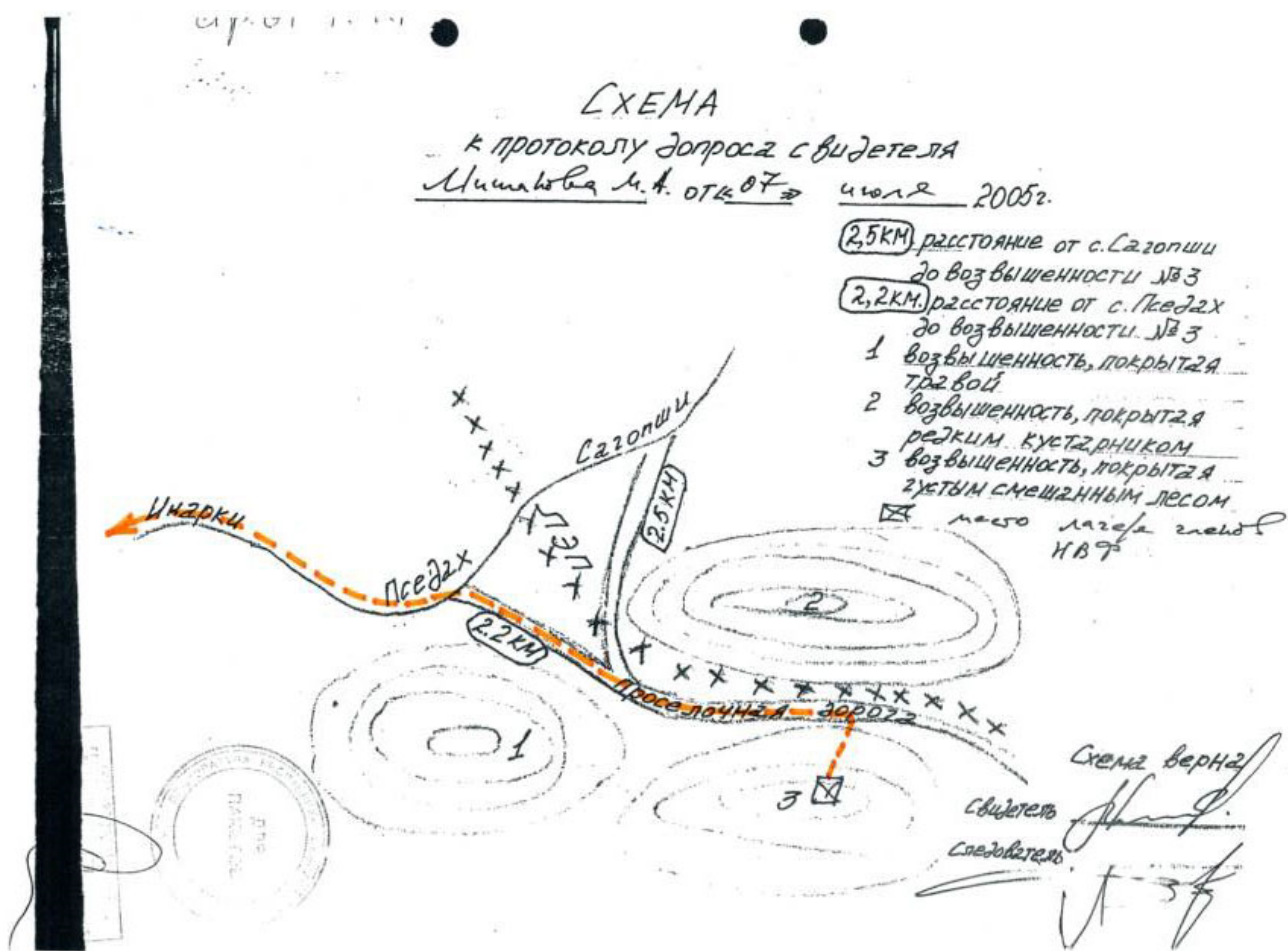 СХЕМА
к протоколу допроса свидетеля
Мишакова М.А. от «07» июля 2005г.
2,5КМ расстояние от с.Сагопши
до возвышенности №3
2,2КМ. расстояние от с.Пседах
до возвышенности №3
1 возвышенность, покрытая
травой
2 возвышенность, покрытая
редким кустарником
3 возвышенность, покрытая
густым смешанным лесом
место лагеря членов
НВФ
Сагопши
Инарки
ЛЭП
2.5КМ
Пседах
2
2.2КМ
Проселочная дорога
1
3
Схема верна
свидетель
следователь
для